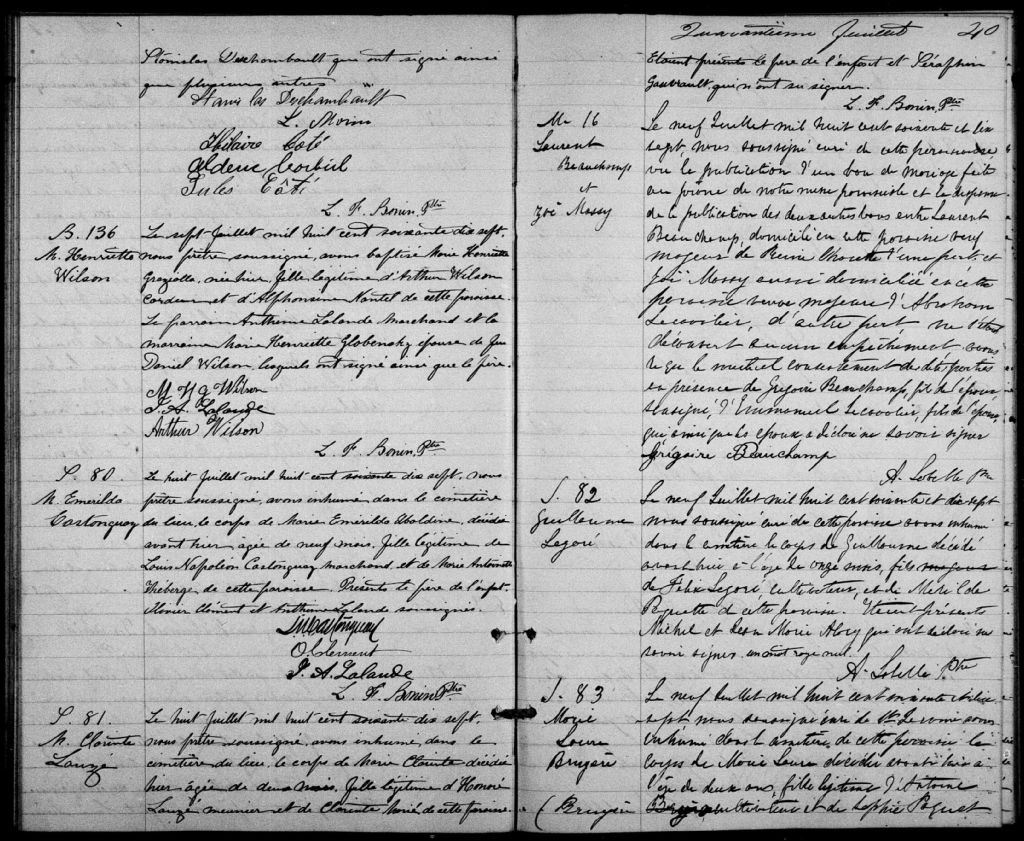 Stanislas Deschambault qui ont signé ainsi
que plusieurs autres
Stanislas Deschambault
L. Morin
Hilaire Coté
Alderic Corbeil
Jules Côté
L. F. Bonin, Ptre
B. 136
M. Henriette
Wilson
Le sept Juillet mil huit cent soixante dix sept,
nous prêtre soussigné, avons baptisé Marie Henriette
Graziella, née hier, fille légitime d'Arthur Wilson
cordeur et d'Alphonsine Nantel de cette paroisse.
Le parrain Anthime Lalande Marchand et la
marraine Marie Henriette Globensky épouse de
Daniel Wilson, lesquels ont signé ainsi que le père.
M H G Wilson
J. A. Lalande
Arthur Wilson
L. F. Bonin, Ptre
S. 80
M. Emerilda
Castonguay
Le huit Juillet mil huit cent soixante dix sept, nous
prêtre soussigné, avons inhumé dans le cimetière
du lieu, le corps de Marie Emérilda décédée
avant hier âgée de neuf mois, fille légitime de
Louis Napoléon Castonguay marchand, et de Marie Antoinette
Théberge de cette paroisse. Présents le père de l'enfant,
Clément et Anthime Lalande soussignés.
LN Castonguay
O. Clement
J. A. Lalande
L. F. Bonin, Ptre
S. 81.
M. Clarinte
Lauzé
Le huit Juillet mil huit cent soixante dix sept,
nous prêtre soussigné, avons inhumé, dans le
cimetière du lieu, le corps de Marie Clarinte décédée
hier âgée de deux mois, fille légitime d'Honoré
Lauzé meunier et de Clarinte de cette paroisse.
Quarantième Juillet 40
Etaient présents le père de l'enfant et Séraphin
Gauvrault, qui n'ont su signer.
L. F. Bonin, Ptre
M. 16
Laurent
Beauchamp
et
Zoé Massy
Le neuf Juillet mil huit cent soixante et dix
sept, nous soussigné curé de cette paroisse
vu la publication d'un ban de mariage fait
au prône de notre messe paroissiale et la dispense
de la publication des deux autres bans entre Laurent
Beauchamp, domicilié en cette paroisse veuf
majeur de Reine d'une part, et
Zoé Massy aussi domiciliée en cette
paroisse veuve majeure d'Abraham
Lecavelier, d'autre part, ne s'étant
découvert aucun empêchement avons
reçu le mutuel consentement de dites parties
en présence de Grégoire Beauchamp, fils de l'époux
soussigné, d'Emmanuel Lecavelier, fils de l'épouse,
qui ainsi que les époux a déclaré ne savoir signer
Grégoire Beauchamp
A. Labelle Ptre
S. 82
Guillaume
Légaré
Le neuf Juillet mil huit cent soixante et dix sept
nous soussigné curé de cette paroisse avons inhumé
dans le cimetière le corps de Guillaume décédé
avant hier à l'âge de onze mois, fils
de Félix Légaré, cultivateur, et de Mathilde
Paquette de cette paroisse. Etaient présents
Michel et Jean Marie Alary qui ont déclaré ne
savoir signer. un mot rayé nul.
A. Labelle Ptre
S. 83
Marie
Laura
Bruyère
(Bruyère
Le neuf Juillet mil huit cent soixante et dix
sept nous soussigné curé de St. Jérôme avons
inhumé dans le cimetière de cette paroisse le
corps de Marie Laura décédée avant hier à
l'âge de deux ans, fille légitime d'Antoine
cultivateur et de Sophie Paquet